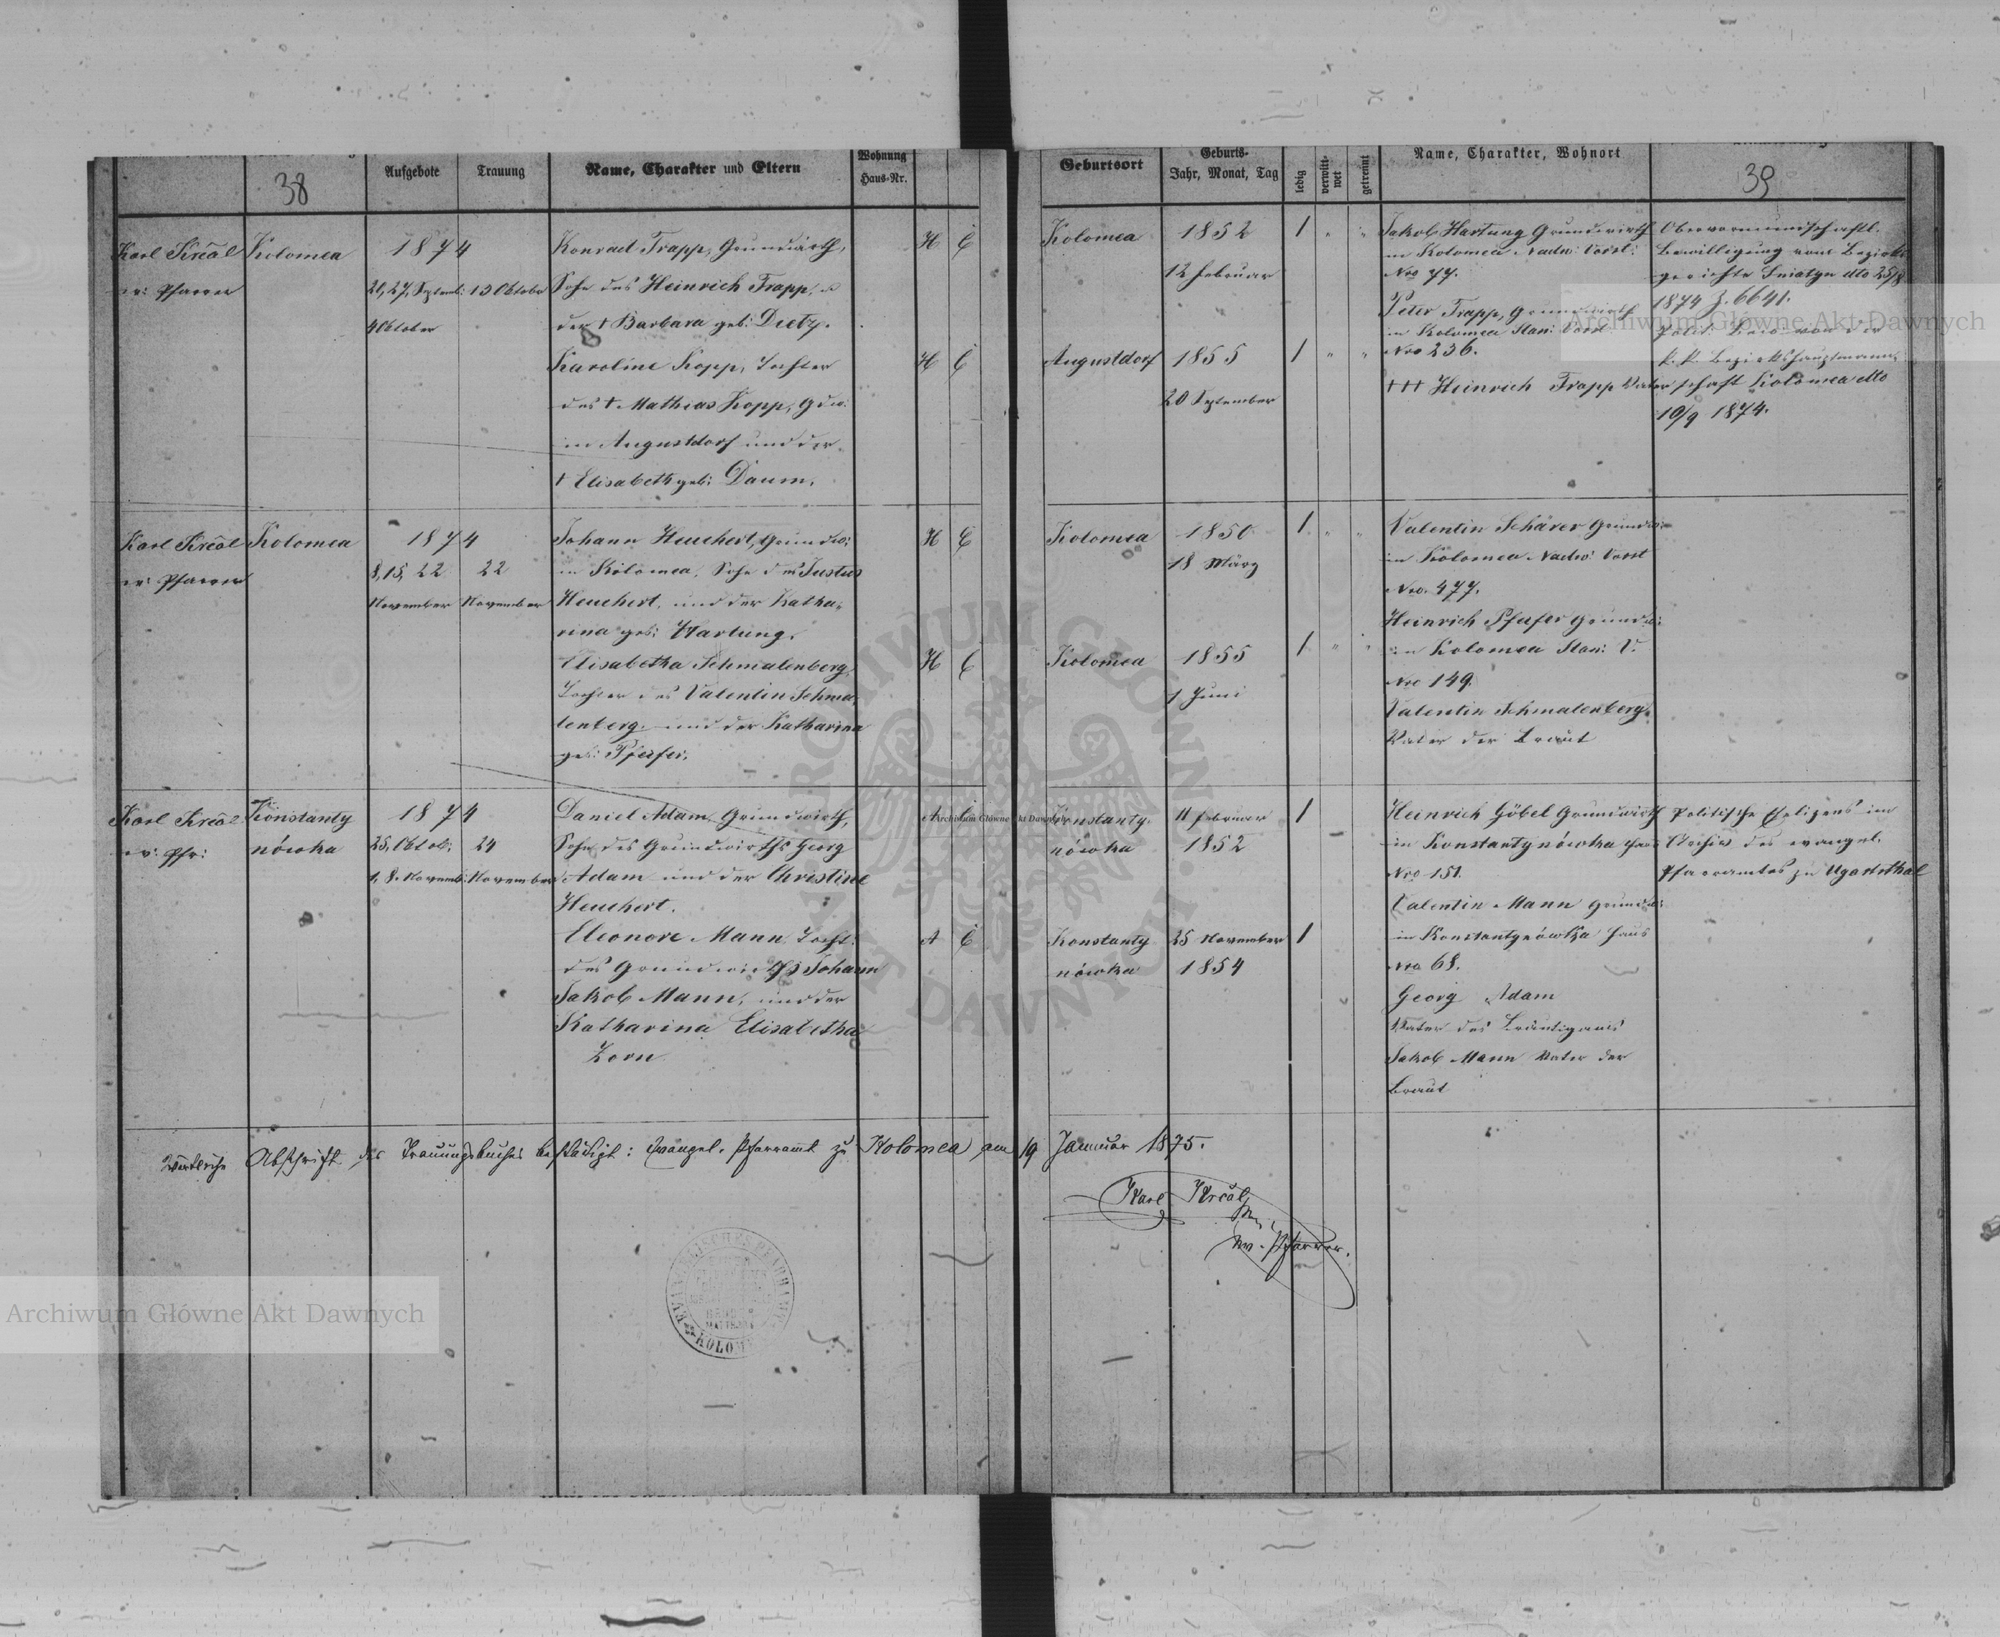 38
Aufgebote
Trauung
Name, Charakter und Eltern
Wohnung
Haus-Nr.
Geburtsort
Geburts-
Jahr, Monat, Tag
ledig
verwitt-
wet
getrennt
Name, Charakter, Wohnort
39
Karl Krčal
ev: Pfarrer
Kolomea
1874
20, 27, Septemb:
4 Oktober
13 Oktober
Konrad Trapp, Grundwirth,
Sohn des Heinrich Trapp, u
der † Barbara geb: Dietz.
H
Karoline Kopp, Tochter
des † Mathias Kopp, Gdw:
in Augustdorf und der
† Elisabeth geb: Daum.
H
Kolomea
1852
12 Februar
1
Augustdorf
1855
20 September
1
Jakob Hartung Grundwirth
in Kolomea Nadw: Vorst:
Nro 77.
Peter Trapp, Grundwirth
in Kolomea Stan: Vorst:
Nro 236.
††† Heinrich Trapp Vater
Obervormundschaftl.
Bewilligung vom Bezirks
gerichte Sniatyn dto 25/8
1874 Z. 6641.
k. k. Bezirkshauptmann-
schaft Kolomea dto
10/9 1874.
Karl Krčal
ev: Pfarrer
Kolomea
1874
8, 15, 22
November
22
November
Johann Heuchert, Grundw:
in Kolomea, Sohn des Justus
Heuchert, und der Katha-
rina geb: Hartung.
H
Elisabetha Schmalenberg
Tochter des Valentin Schma-
lenberg und der Katharina
geb: Pfeifer.
H
Kolomea
1850
18 März
1
Kolomea
1855
1 Juni
1
Valentin Schärer Grundw:
in Kolomea Nadw: Vorst
Nro. 477.
Heinrich Pfeifer Grundw:
in Kolomea Stan: V.
Nro 149.
Valentin Schmalenberg
Vater der Braut
Karl Krčal
ev: Pfr:
Konstanty
nówka
1874
25, Oktob:
1, 8. Novemb:
24
November
Daniel Adam, Grundwirth,
Sohn des Grundwirths Georg
Adam und der Christine
Heuchert.
A
Eleonore Mann, Tocht:
des Grundwirths Johann
Jakob Mann, und der
Katharina Elisabetha
Zorn
A
Konstanty-
nówka
11 Februar
1852
1
Konstanty
nówka
25 November
1854
1
Heinrich Göbel Grundwirth
in Konstantynówka Haus
Nro 151.
Valentin Mann Grundw:
in Konstantynówka Haus
Nro 68.
Georg Adam
Vater des Bräutigams
Jakob Mann Vater der
Braut
Politische Ehelizens im
Archiv des evangel.
Pfarramtes zu Ugartsthal
Wörtliche Abschrift des Trauungsbuches bestätigt: Evangel. Pfarramt zu Kolomea am 19 Januar 1875.
Karl Krčal,
ev. Pfarrer.
KOLOMEA
ARCHIWUM GŁÓWNE AKT DAWNYCH
Archiwum Główne Akt Dawnych
Archiwum Główne Akt Dawnych
Archiwum Główne Akt Dawnych